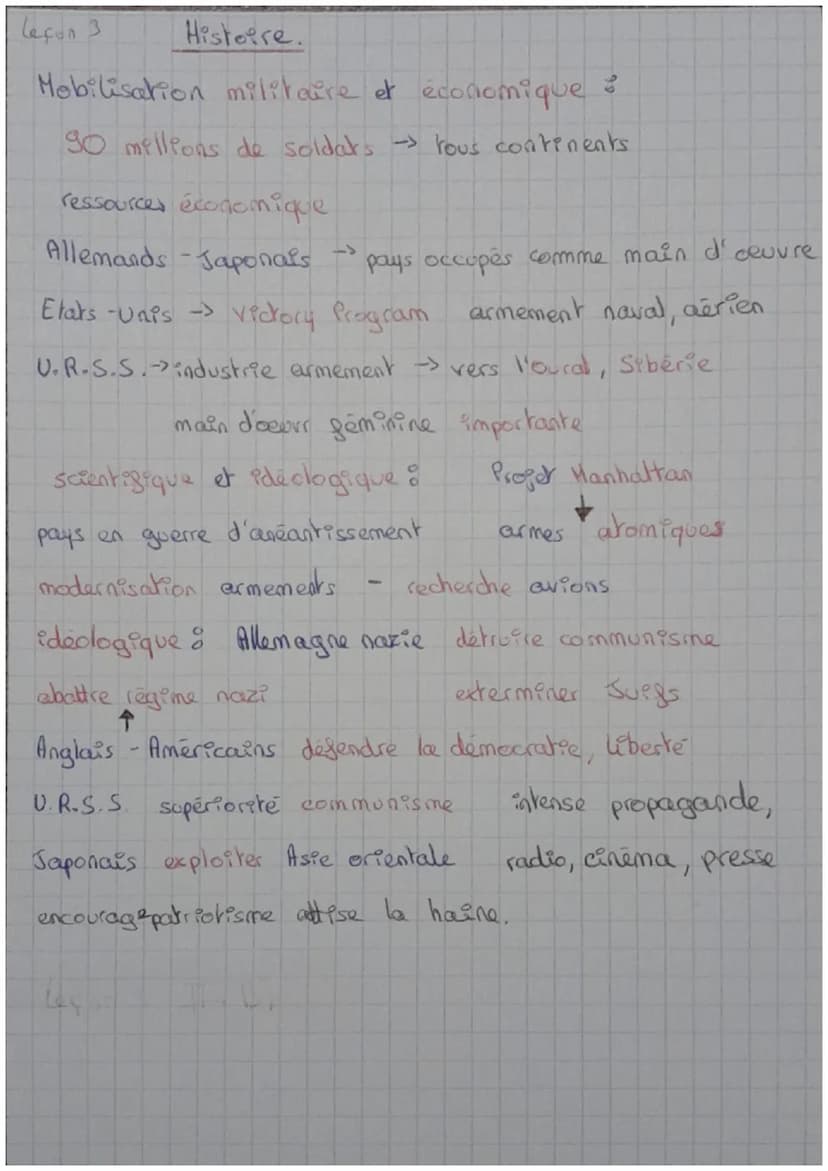 Leçon 3 Histoire.
Mobilisation militaire et économique :
90 millions de soldats → tous continents
ressources économique
Allemands - Japonais → pays occupés comme main d'œuvre
Etats-Unis → Victory Program armement naval, aérien
U.R.S.S. → industrie armement → vers l'oural, Sibérie
main d'oeuvr féminine importante
scientifique et idéologique : Projet Manhattan
pays en guerre d'anéantissement armes ↓ atomiques
modernisation armements - recherche avions
idéologique : Allemagne nazie détruire communisme
abattre régime nazi exterminer Juifs
↑
Anglais - Américains défendre la démocratie, liberté
U.R.S.S. supériorité communisme intense propagande,
Japonais exploiter Asie orientale radio, cinéma, presse
encourage patriotisme attise la haine.